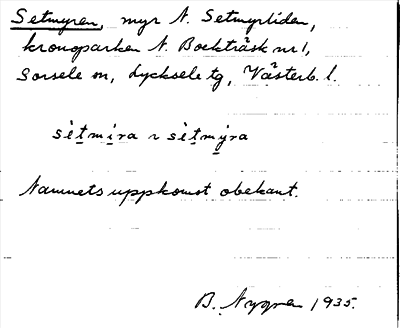 Setmyren, myr N. Setmyrliden,
kronoparken N. Bockträsk nr 1,
Sorsele sn, Lycksele tg, Västerb. l.
sètmira ~ sètmyra
Namnets uppkomst obekant.
B. Nygren 1935.